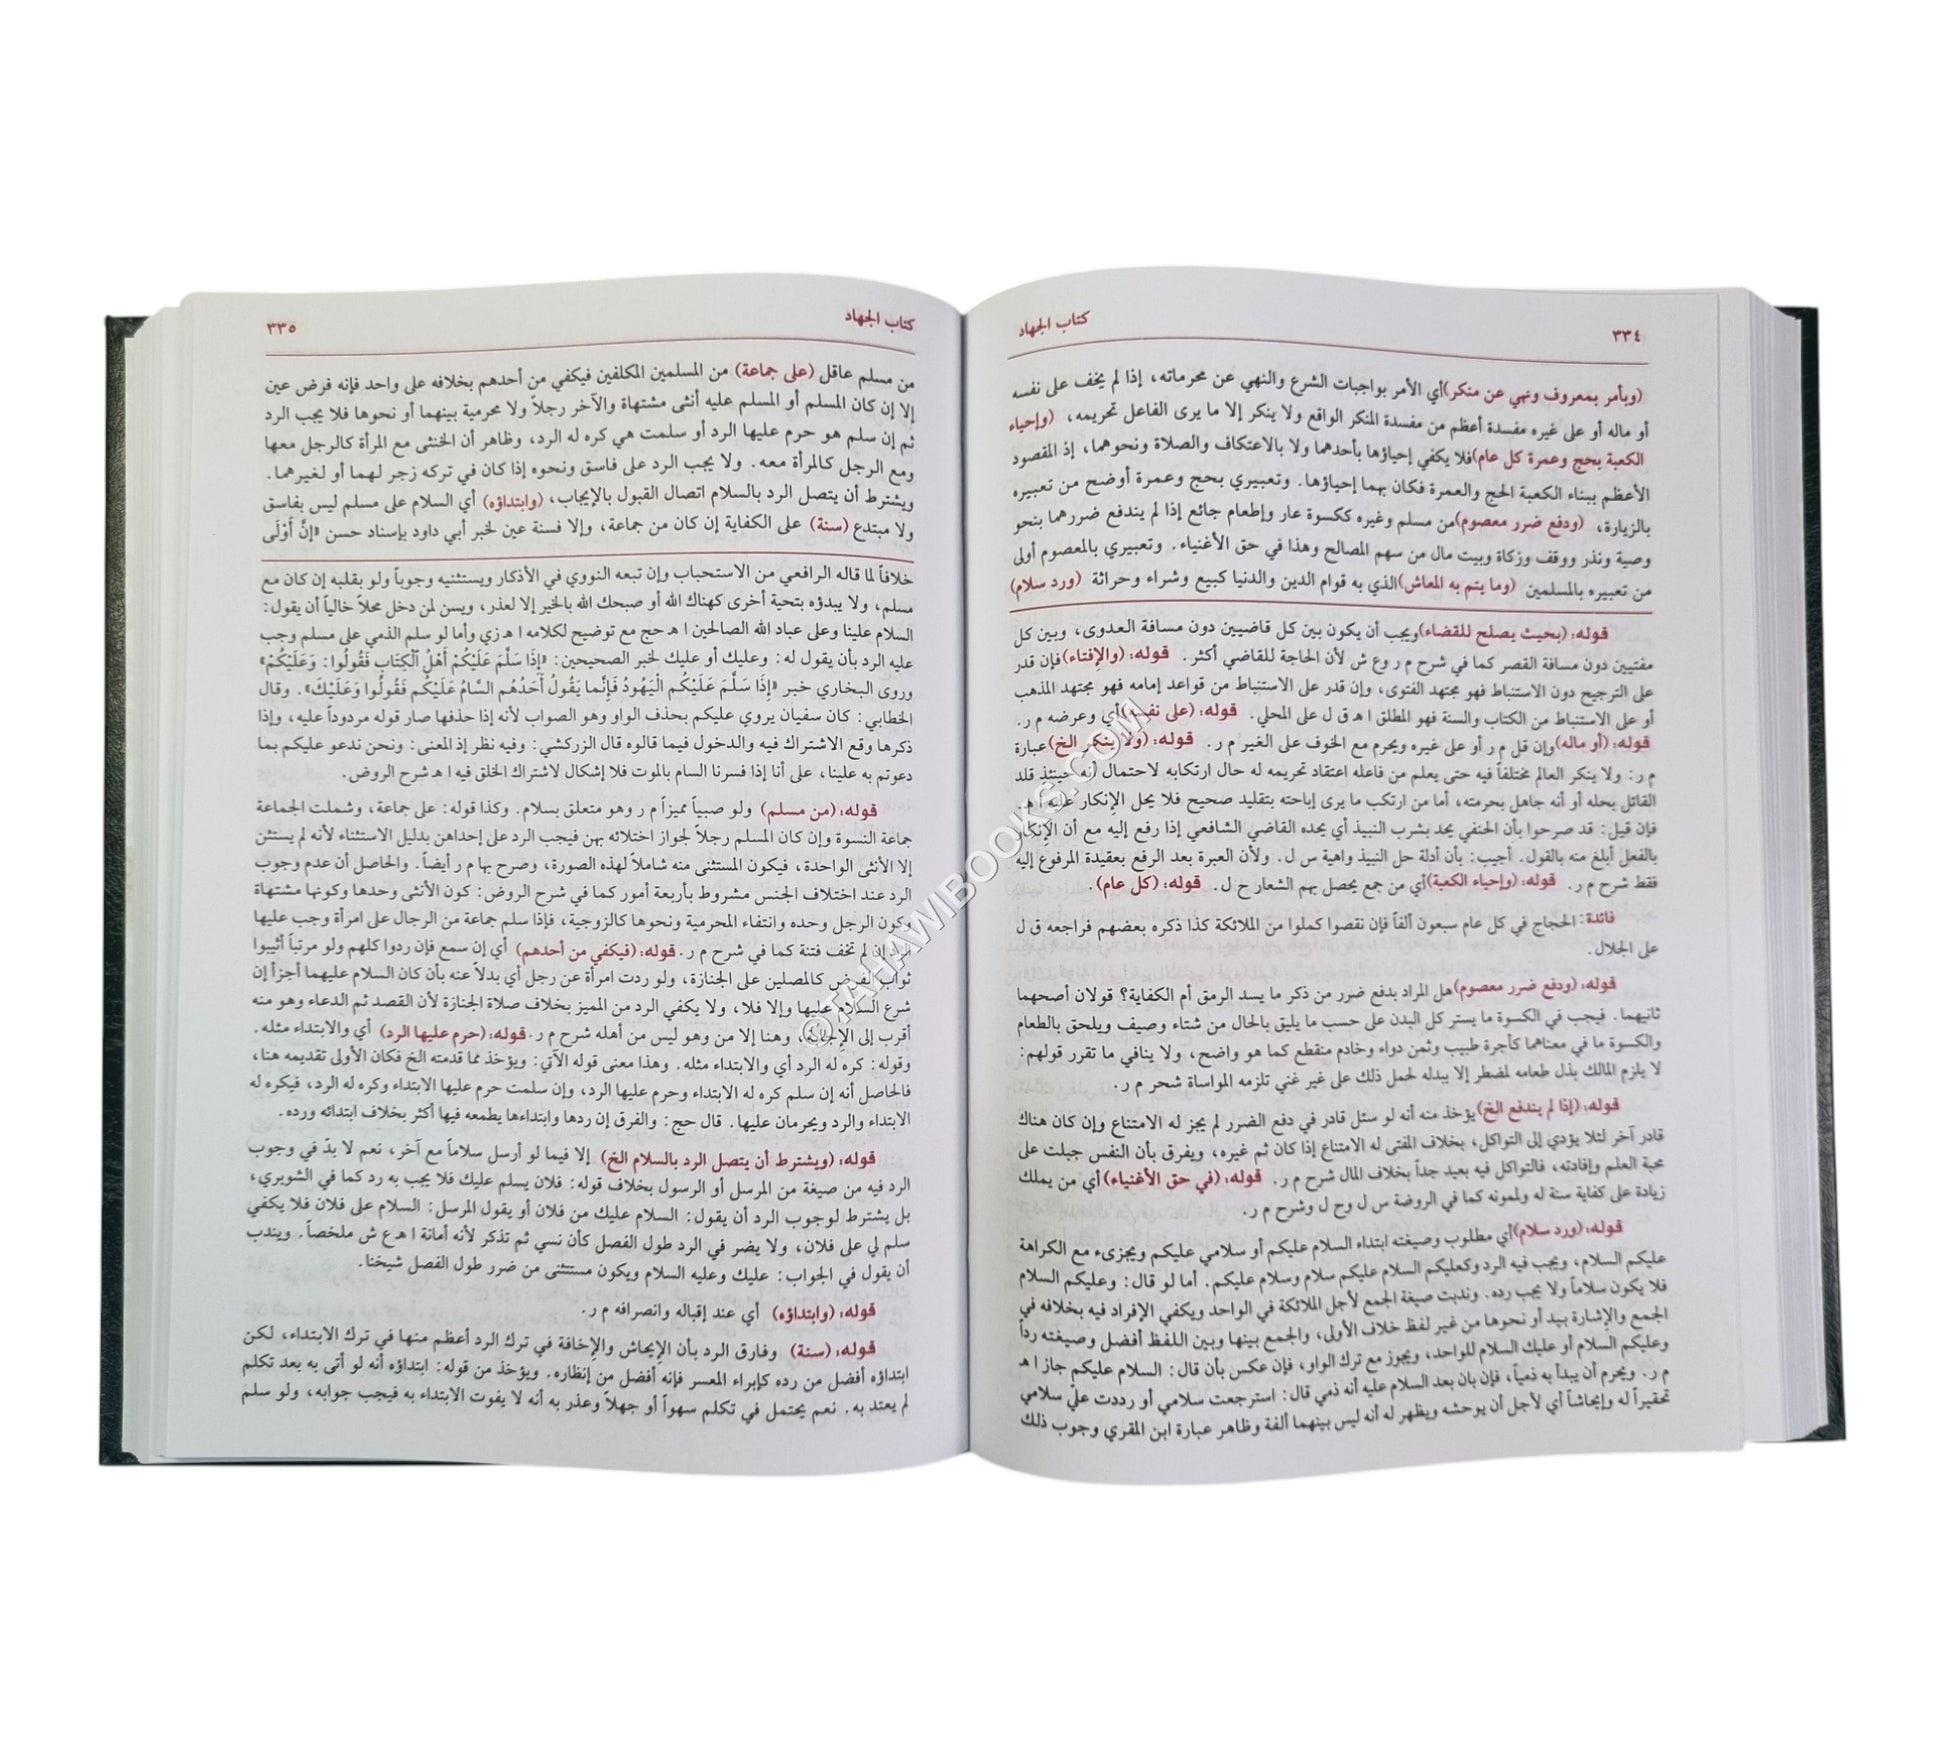 ٣٣٤
كتاب الجهاد
(وبأمر بمعروف ونهي عن منكر) أي الأمر بواجبات الشرع والنهي عن محرماته، إذا لم يخف على نفسه
أو ماله أو على غيره مفسدة أعظم من مفسدة المنكر الواقع ولا ينكر إلا ما يرى الفاعل تحريمه، (وإحياء
الكعبة بحج وعمرة كل عام) فلا يكفي إحياؤها بأحدهما ولا بالاعتكاف والصلاة ونحوهما، إذ المقصود
الأعظم ببناء الكعبة الحج والعمرة فكان بهما إحياؤها. وتعبيري بحج وعمرة أوضح من تعبيره
بالزيارة، (ودفع ضرر معصوم) من مسلم وغيره ككسوة عار وإطعام جائع إذا لم يندفع ضررهما بنحو
وصية ونذر ووقف وزكاة وبيت مال من سهم المصالح وهذا في حق الأغنياء. وتعبيري بالمعصوم أولى
من تعبيره بالمسلمين (وما يتم به المعاش) الذي به قوام الدين والدنيا كبيع وشراء وحراثة (ورد سلام)
قوله: (بحيث يصلح للقضاء) ويجب أن يكون بين كل قاضيين دون مسافة العدوى، وبين كل
مفتيين دون مسافة القصر كما في شرح م ر وع ش لأن الحاجة للقاضي أكثر. قوله: (والإفتاء) فإن قدر
على الترجيح دون الاستنباط فهو مجتهد الفتوى، وإن قدر على الاستنباط من قواعد إمامه فهو مجتهد المذهب
أو على الاستنباط من الكتاب والسنة فهو المطلق ا هـ ق ل على المحلي. قوله: (على نفسه) أي وعرضه م ر.
قوله: (أو ماله) وإن قل م ر أو على غيره ويحرم مع الخوف على الغير م ر. قوله: (ولا ينكر الخ) عبارة
م ر: ولا ينكر العالم مختلفاً فيه حتى يعلم من فاعله اعتقاد تحريمه له حال ارتكابه لاحتمال أنه حينئذ قلد
القائل بحله أو أنه جاهل بحرمته، أما من ارتكب ما يرى إباحته بتقليد صحيح فلا يحل الإنكار عليه ا هـ.
فإن قيل: قد صرحوا بأن الحنفي يحد بشرب النبيذ أي يحده القاضي الشافعي إذا رفع إليه مع أن الإنكار
بالفعل أبلغ منه بالقول. أجيب: بأن أدلة حل النبيذ واهية س ل. ولأن العبرة بعد الرفع بعقيدة المرفوع إليه
فقط شرح م ر. قوله: (وإحياء الكعبة) أي من جمع يحصل بهم الشعار ح ل. قوله: (كل عام).
فائدة: الحجاج في كل عام سبعون ألفاً فإن نقصوا كملوا من الملائكة كذا ذكره بعضهم فراجعه ق ل
على الجلال.
قوله: (ودفع ضرر معصوم) هل المراد بدفع ضرر من ذكر ما يسد الرمق أم الكفاية؟ قولان أصحهما
ثانيهما. فيجب في الكسوة ما يستر كل البدن على حسب ما يليق بالحال من شتاء وصيف ويلحق بالطعام
والكسوة ما في معناهما كأجرة طبيب وثمن دواء وخادم منقطع كما هو واضح، ولا ينافي ما تقرر قولهم:
لا يلزم المالك بذل طعامه لمضطر إلا ببدله لحمل ذلك على غير غني تلزمه المواساة شحر م ر.
قوله: (إذا لم يندفع الخ) يؤخذ منه أنه لو سئل قادر في دفع الضرر لم يجز له الامتناع وإن كان هناك
قادر آخر لئلا يؤدي إلى التواكل، بخلاف المفتى له الامتناع إذا كان ثم غيره، ويفرق بأن النفس جبلت على
محبة العلم وإفادته، فالتواكل فيه بعيد جداً بخلاف المال شرح م ر. قوله: (في حق الأغنياء) أي من يملك
زيادة على كفاية سنة له ولممونه كما في الروضة س ل وح ل وشرح م ر.
قوله: (ورد سلام) أي مطلوب وصيغته ابتداء السلام عليكم أو سلامي عليكم ويجزىء مع الكراهة
عليكم السلام، ويجب فيه الرد وكعليكم السلام عليكم سلام وسلام عليكم. أما لو قال: وعليكم السلام
فلا يكون سلاماً ولا يجب رده. وندبت صيغة الجمع لأجل الملائكة في الواحد ويكفي الإفراد فيه بخلافه في
الجمع والإشارة بيد أو نحوها من غير لفظ خلاف الأولى، والجمع بينها وبين اللفظ أفضل وصيغته رداً
وعليكم السلام أو عليك السلام للواحد، ويجوز مع ترك الواو، فإن عكس بأن قال: السلام عليكم جاز ا هـ
م ر. ويحرم أن يبدأ به ذمياً، فإن بان بعد السلام عليه أنه ذمي قال: استرجعت سلامي أو رددت عليّ سلامي
تحقيراً له وإيحاشاً أي لأجل أن يوحشه ويظهر له أنه ليس بينهما ألفة وظاهر عبارة ابن المقري وجوب ذلك
كتاب الجهاد
٣٣٥
من مسلم عاقل (على جماعة) من المسلمين المكلفين فيكفي من أحدهم بخلافه على واحد فإنه فرض عين
إلا إن كان المسلم أو المسلم عليه أنثى مشتهاة والآخر رجلاً ولا محرمية بينهما أو نحوها فلا يجب الرد
ثم إن سلم هو حرم عليها الرد أو سلمت هي كره له الرد، وظاهر أن الخنثى مع المرأة كالرجل معها
ومع الرجل كالمرأة معه. ولا يجب الرد على فاسق ونحوه إذا كان في تركه زجر لهما أو لغيرهما.
ويشترط أن يتصل الرد بالسلام اتصال القبول بالإيجاب، (وابتداؤه) أي السلام على مسلم ليس بفاسق
ولا مبتدع (سنة) على الكفاية إن كان من جماعة، وإلا فسنة عين لخبر أبي داود بإسناد حسن «إنَّ أَوْلَى
خلافاً لما قاله الرافعي من الاستحباب وإن تبعه النووي في الأذكار ويستثنيه وجوباً ولو بقلبه إن كان مع
مسلم، ولا يبدؤه بتحية أخرى كهناك الله أو صبحك الله بالخير إلا لعذر، ويسن لمن دخل محلاً خالياً أن يقول:
السلام علينا وعلى عباد الله الصالحين ا هـ حج مع توضيح لكلامه ا هـ زي وأما لو سلم الذمي على مسلم وجب
عليه الرد بأن يقول له: وعليك أو عليك لخبر الصحيحين: «إذَا سَلَّمَ عَلَيْكُمْ أَهْلُ ٱلْكِتَابِ فَقُولُوا: وَعَلَيْكُمْ»
وروى البخاري خبر «إِذَا سَلَّمَ عَلَيْكُم الْيَهُودُ فَإِنَّما يَقُولُ أَحَدُهُم السَّامُ عَلَيْكُم فَقُولُوا وَعَلَيْكَ». وقال
الخطابي: كان سفيان يروي عليكم بحذف الواو وهو الصواب لأنه إذا حذفها صار قوله مردوداً عليه، وإذا
ذكرها وقع الاشتراك فيه والدخول فيما قالوه قال الزركشي: وفيه نظر إذ المعنى: ونحن ندعو عليكم بما
دعوتم به علينا، على أنا إذا فسرنا السام بالموت فلا إشكال لاشتراك الخلق فيه ا هـ شرح الروض.
قوله: (من مسلم) ولو صبياً مميزاً م ر وهو متعلق بسلام. وكذا قوله: على جماعة، وشملت الجماعة
جماعة النسوة وإن كان المسلم رجلاً لجواز اختلائه بهن فيجب الرد على إحداهن بدليل الاستثناء لأنه لم يستثن
إلا الأنثى الواحدة، فيكون المستثنى منه شاملاً لهذه الصورة، وصرح بها م ر أيضاً. والحاصل أن عدم وجوب
الرد عند اختلاف الجنس مشروط بأربعة أمور كما في شرح الروض: كون الأنثى وحدها وكونها مشتهاة
وكون الرجل وحده وانتفاء المحرمية ونحوها كالزوجية، فإذا سلم جماعة من الرجال على امرأة وجب عليها
الرد إن لم تخف فتنة كما في شرح م ر. قوله: (فيكفي من أحدهم) أي إن سمع فإن ردوا كلهم ولو مرتباً أثيبوا
ثواب الفرض كالمصلين على الجنازة، ولو ردت امرأة عن رجل أي بدلاً عنه بأن كان السلام عليهما أجزأ إن
شرع السلام عليها وإلا فلا، ولا يكفي الرد من المميز بخلاف صلاة الجنازة لأن القصد ثم الدعاء وهو منه
أقرب إلى الإجابة، وهنا إلا من وهو ليس من أهله شرح م ر. قوله: (حرم عليها الرد) أي والابتداء مثله.
وقوله: كره له الرد أي والابتداء مثله. وهذا معنى قوله الآتي: ويؤخذ مما قدمته الخ فكان الأولى تقديمه هنا،
فالحاصل أنه إن سلم كره له الابتداء وحرم عليها الرد، وإن سلمت حرم عليها الابتداء وكره له الرد، فيكره له
الابتداء والرد ويحرمان عليها. قال حج: والفرق إن ردها وابتداءها يطمعه فيها أكثر بخلاف ابتدائه ورده.
قوله: (ويشترط أن يتصل الرد بالسلام الخ) إلا فيما لو أرسل سلاماً مع آخر، نعم لا بدّ في وجوب
الرد فيه من صيغة من المرسل أو الرسول بخلاف قوله: فلان يسلم عليك فلا يجب به رد كما في الشوبري،
بل يشترط لوجوب الرد أن يقول: السلام عليك من فلان أو يقول المرسل: السلام على فلان فلا يكفي
سلم لي على فلان، ولا يضر في الرد طول الفصل كأن نسي ثم تذكر لأنه أمانة ا هـ ع ش ملخصاً. ويندب
أن يقول في الجواب: عليك وعليه السلام ويكون مستثنى من ضرر طول الفصل شيخنا.
قوله: (وابتداؤه) أي عند إقباله وانصرافه م ر.
قوله: (سنة) وفارق الرد بأن الإيحاش والإخافة في ترك الرد أعظم منها في ترك الابتداء، لكن
ابتداؤه أفضل من رده كإبراء المعسر فإنه أفضل من إنظاره. ويؤخذ من قوله: ابتداؤه أنه لو أتى به بعد تكلم
لم يعتد به. نعم يحتمل في تكلم سهواً أو جهلاً وعذر به أنه لا يفوت الابتداء به فيجب جوابه، ولو سلم
©TAHAWIBOOKS.COM